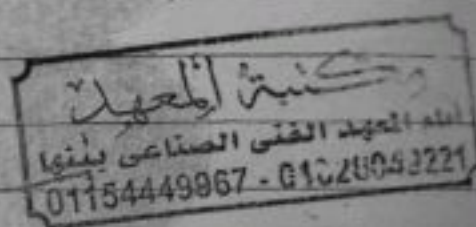 مكتبة المعهد
أمام المعهد الفنى الصناعى ببنها
01154449967 -